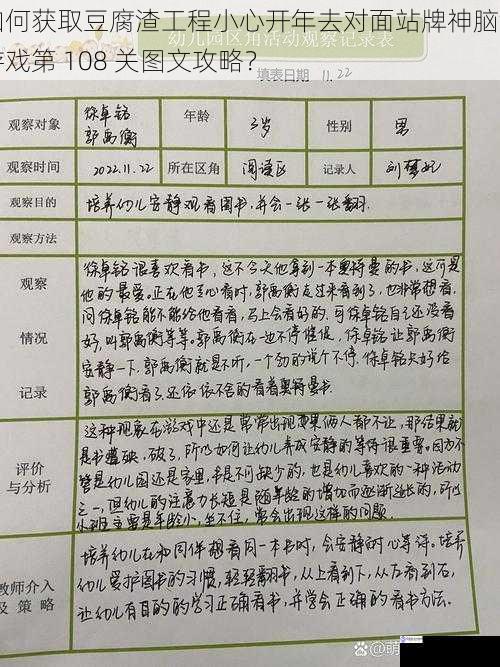 如何获取豆腐渣工程小心开年去对面站牌神脑
游戏第 108 关图文攻略？
幼儿园区角活动观察记录表
填表日期 11.22
观察对象 徐卓铭 郭禹衡 年龄 3岁 性别 男
观察时间 2022.11.22 所在区角 阅读区 记录人 刘梦妮
观察目的 培养幼儿安静观看图书，并会一张一张翻.
观察方法
观察
情况
记录
徐卓铭很喜欢看书，这不今天他拿到一本奥特曼的书，这可是
他的最爱。正在他专心看时，郭禹衡走过来看到了，也非常想看，
问徐卓铭能不能给他看看，马上会看好的，可徐卓铭自己还没看
好，叫郭禹衡等等。郭禹衡在一边不停催促，徐卓铭让郭禹衡
安静一下，郭禹衡就是不听，一个劲的说个不停，徐卓铭只好给
郭禹衡看了，还依依不舍的看着奥特曼书.
评价
与分析
这种现象在游戏中还是常常出现，如果俩人都不让，那结果就
是书遭殃，破了，所以如何让幼儿养成安静的等待很重要。因为不
管是幼儿园还是家里，书是不可缺少的，也是幼儿喜欢的一种活动
之一，但幼儿的注意力长短是随年龄的增加而逐渐延长的，所以
小班主要是年龄小，坐不住，常会出现这样的问题.
教师介入
及 策略
培养幼儿在和同伴想看同一本书时，会安静耐心等待。培养
幼儿爱护图书的习惯，轻轻翻书，从上看到下，从左看到右，
让幼儿有目的的学习正确看书，并学会正确的看书方法.